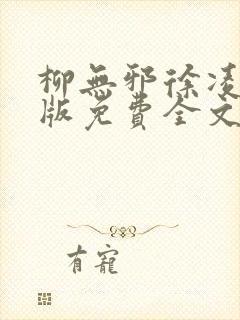 柳無邪徐凌
版免費全文
有寵